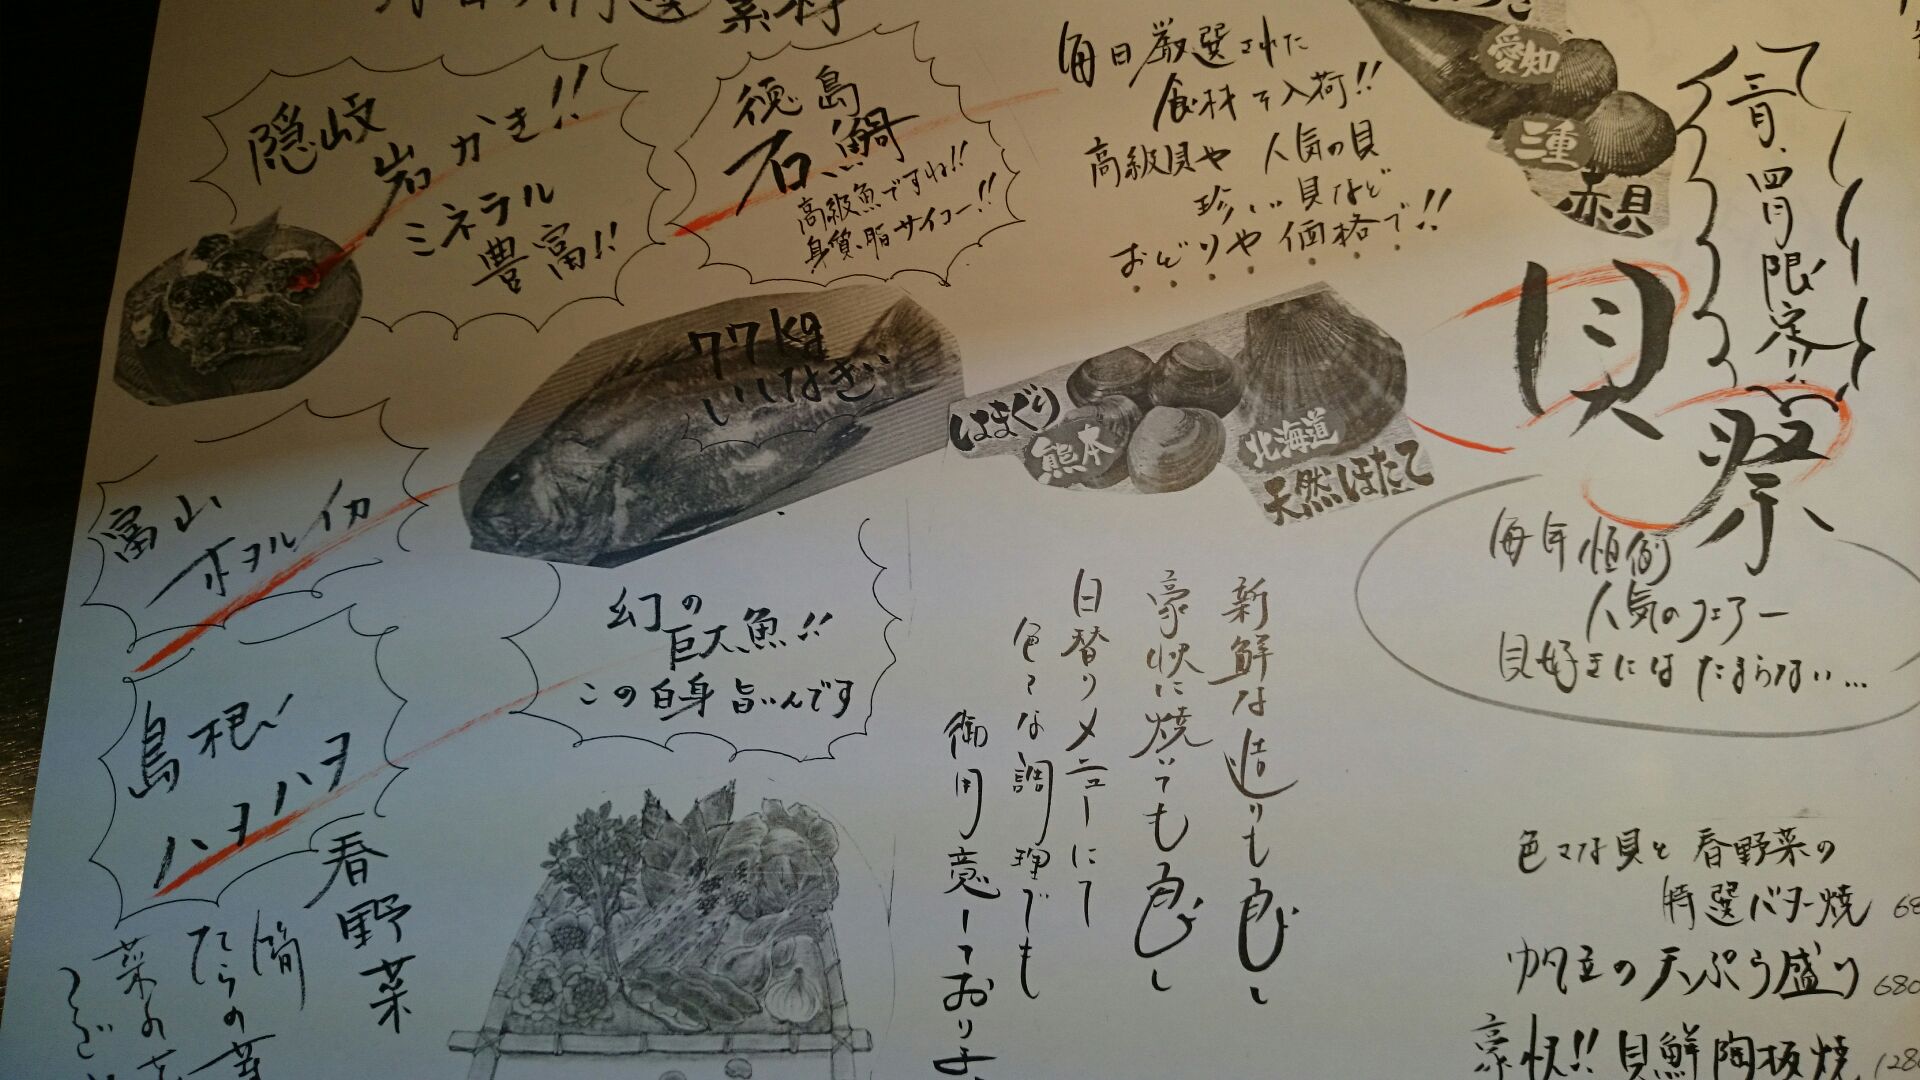 素材
隠岐
岩かき!!
ミネラル
豊富!!
徳島
石鯛
高級魚ですね!!
身質、脂サイコー!!
毎日厳選された
食材を入荷!!
高級貝や 人気の貝
珍しい貝など
おどりや価格で!!
愛知
三重
赤貝
三月、四月限定!!
貝祭
77kg
いしなぎ
はまぐり
熊本
北海道
天然ほたて
毎年恒例
人気のフェアー
貝好きにはたまらない...
富山
ホタルイカ
幻の
巨大魚!!
この白身旨いんです
島根
ハタハタ
新鮮な造りも良し
豪快に焼いても良し
日替りメニューにて
色々な調理でも
御用意しており
春野菜
筒
たらの芽
菜の花
色々な貝と春野菜の
特選バター焼 68
帆立の天ぷら盛り 680
豪快!!貝鮮陶板焼 128